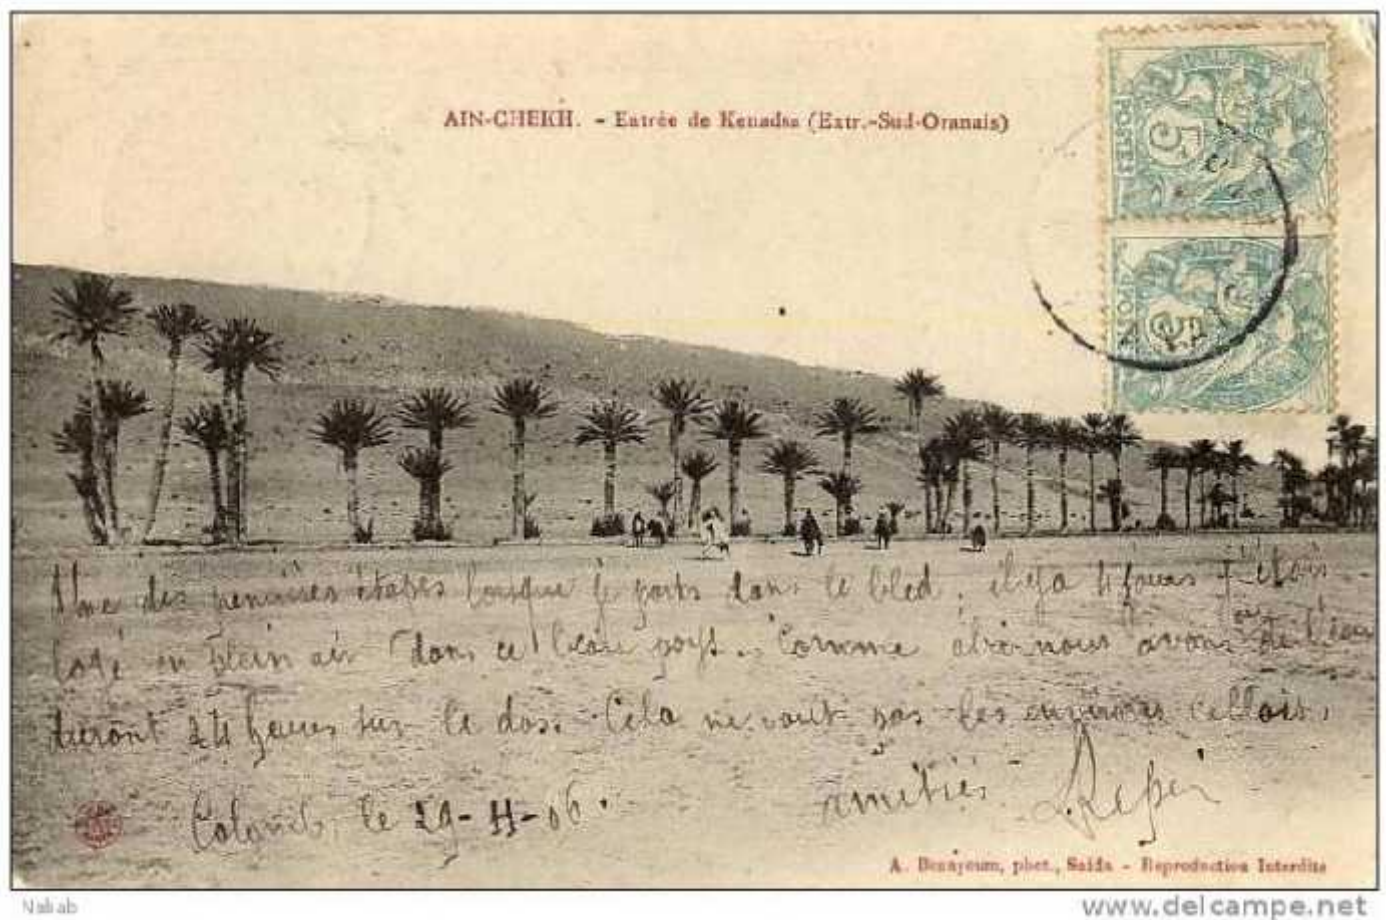 AIN-CHEKH. - Entrée de Kenadsa (Extr.-Sud-Oranais)
POSTES
5
5
Une des premières étapes lorsque je parts dans le bled, il y a 4 jours j'étois
logé en plein air dans ce beau pays. Comme abri nous avons
durant 24 heures sur le dos. Cela ne vaut pas les environs
Colomb, le 29-11-06.
amitiés
A. Benayoum, phot., Saïda - Reproduction Interdite
Nakab
www.delcampe.net